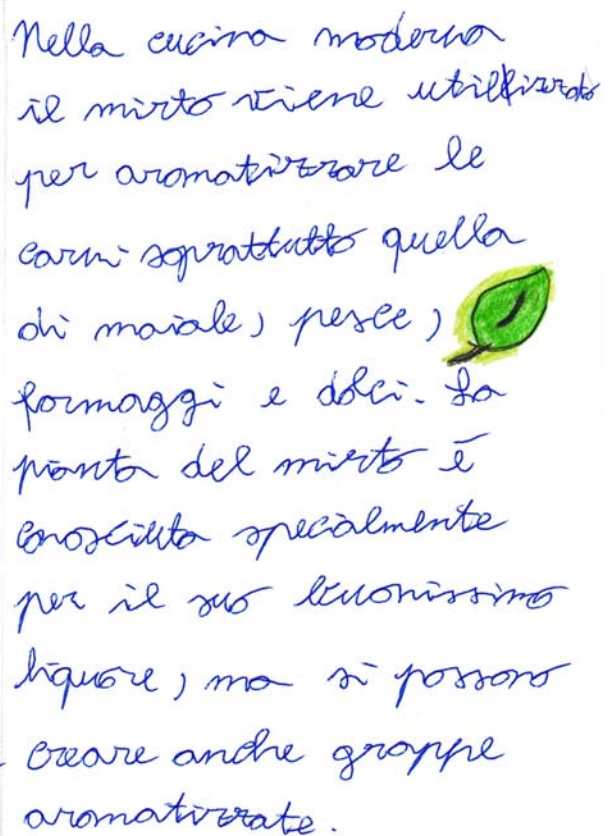 Nella cucina moderna
il mirto viene utilizzato
per aromatizzare le
carni soprattutto quella
di maiale, pesce,
formaggi e dolci. La
pianta del mirto è
conosciuta specialmente
per il suo buonissimo
liquore, ma si possono
creare anche grappe
aromatizzate.